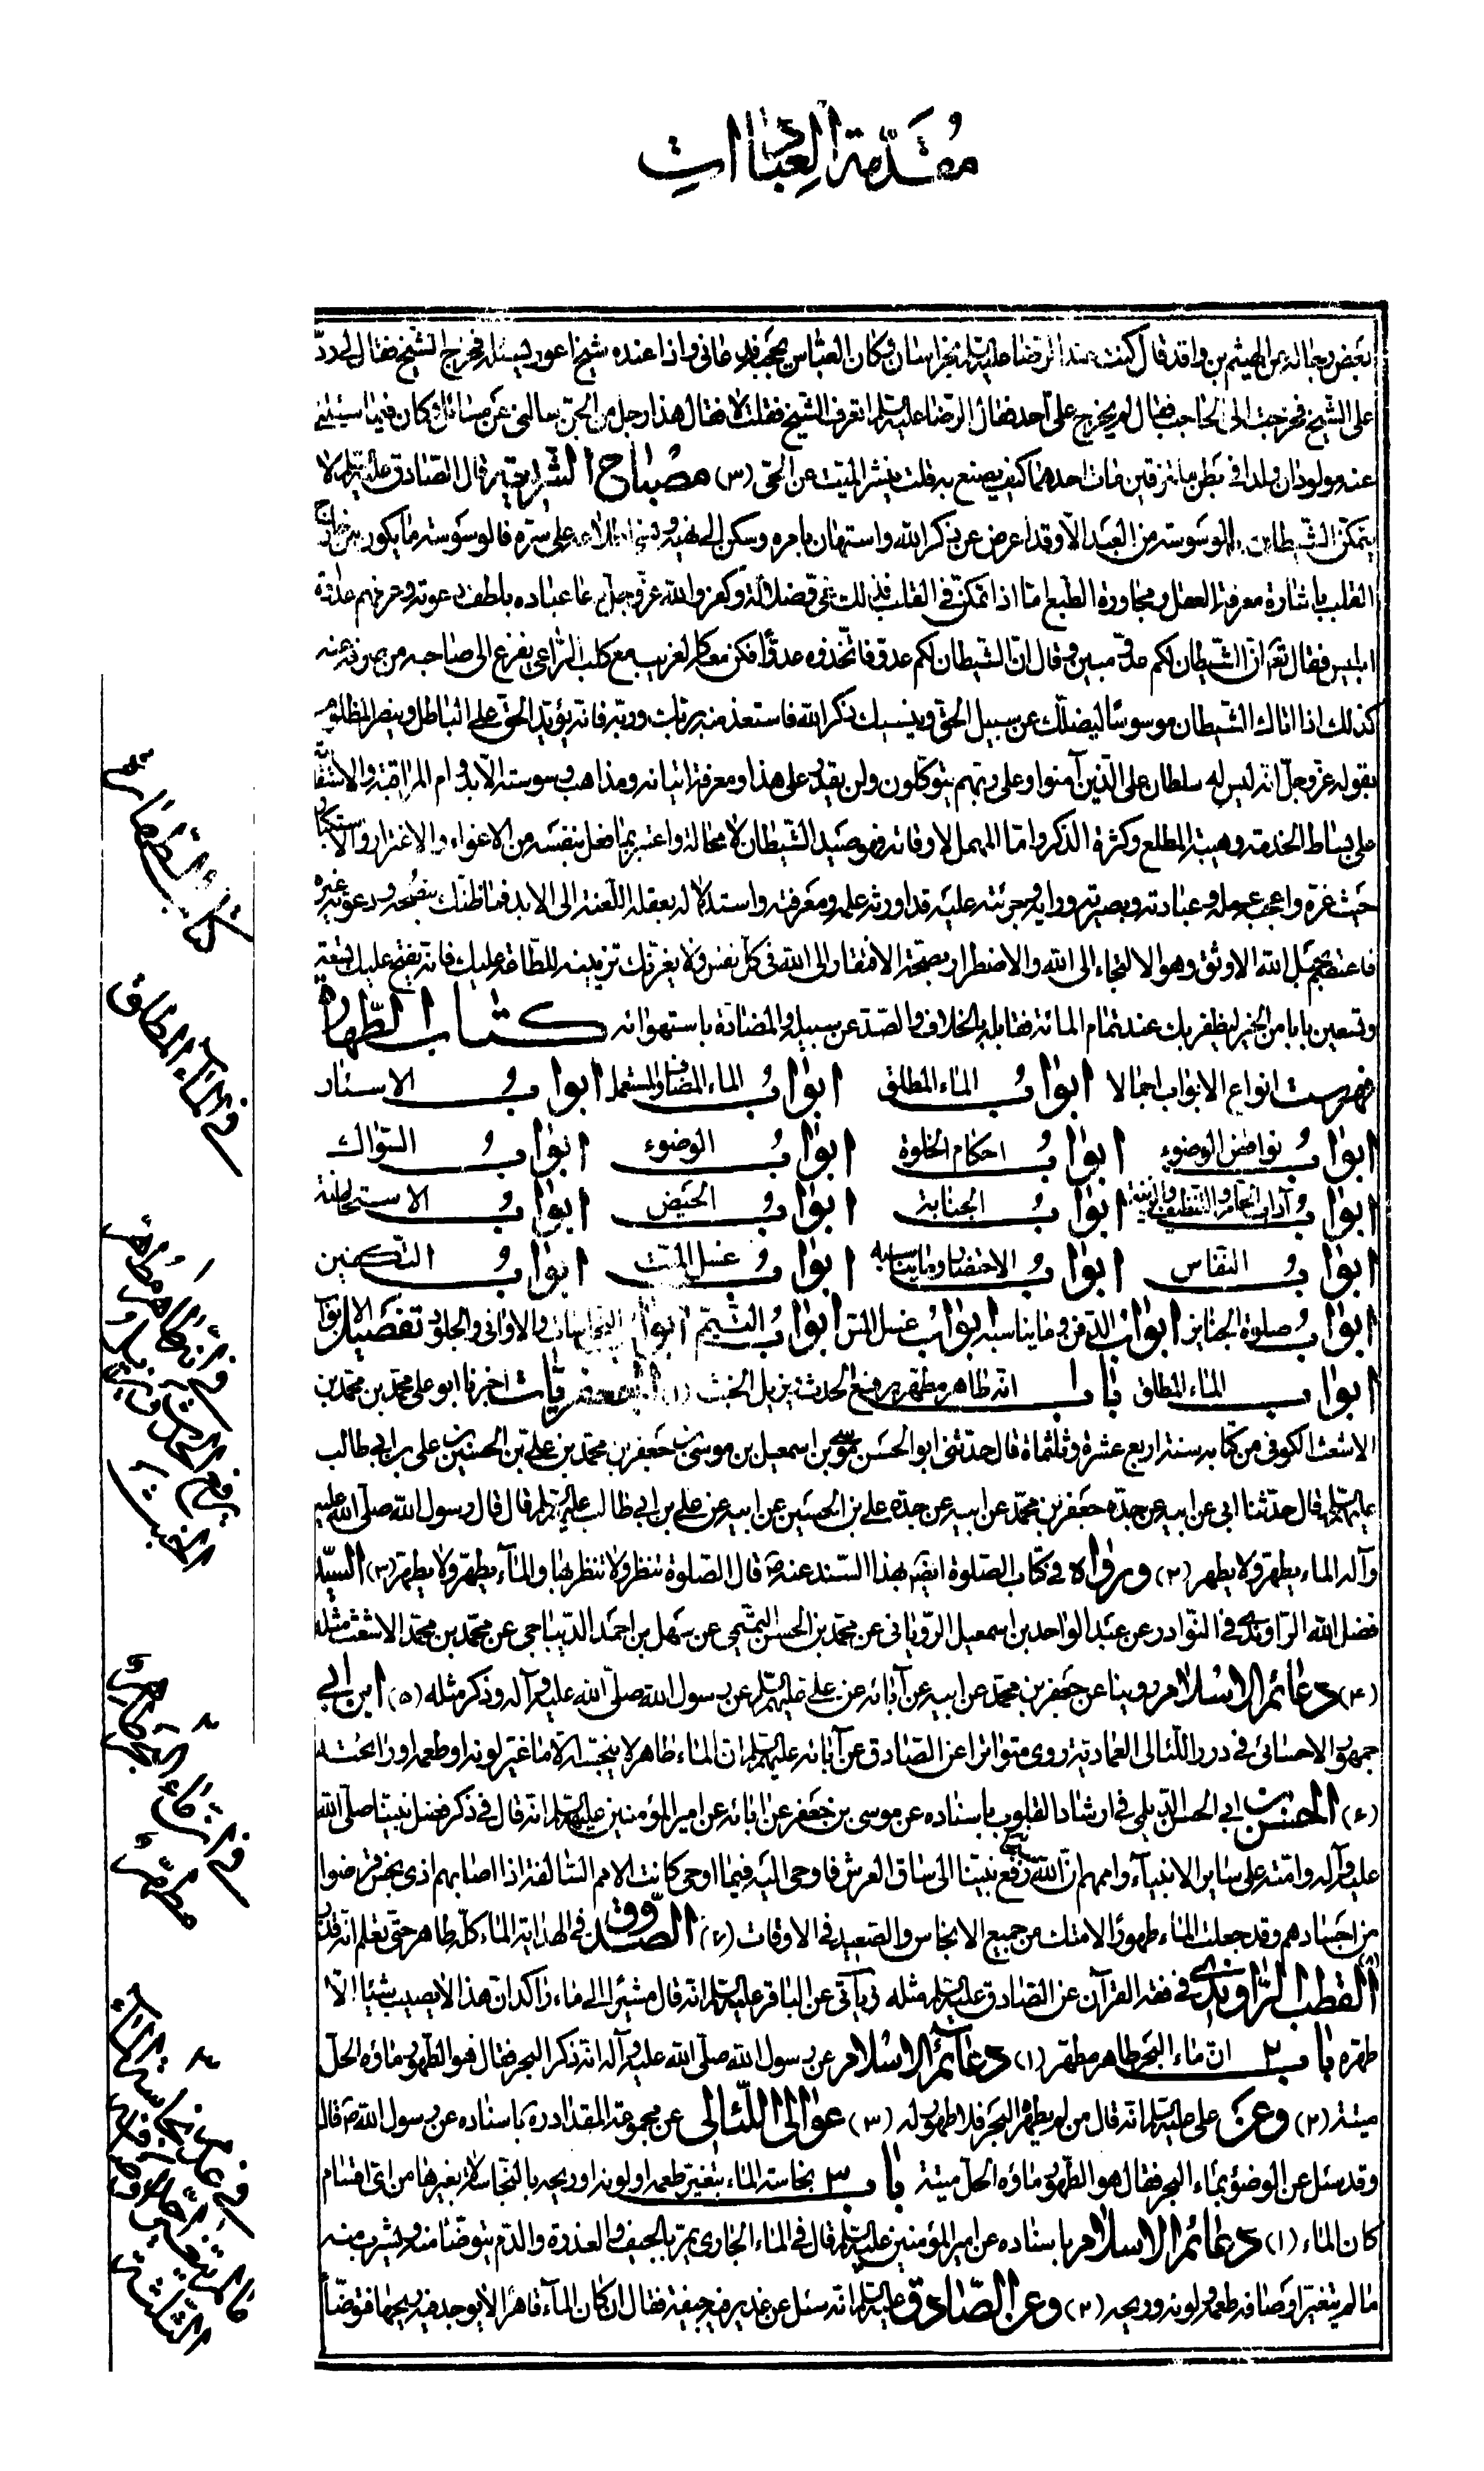 مُقَدِّمة العِبادات
بعض رجاله عن الهيثم بن واقد قال كنت عند الرضا عليه السلم بخراسان وكان العباس يحجبه فدعاني واذا عنده شيخ اعور يسئله فخرج الشيخ فقال لي ردّ
علي الشيخ فخرجت الى الحاجب فقال لم يخرج علي احد فقال الرضا عليه السلم اتعرف الشيخ فقلت لا فقال هذا رجل من الجن سالني عن مسائل وكان فيما سئلني
عنه مولودان ولدا في بطن ملتزقين مات احدهما كيف يصنع به قلت ينشر الميت عن الحي (٣) مصباح الشريعة قال الصادق عليه السلم لا
يتمكن الشيطان بالوسوسة من العبد الا وقد اعرض عن ذكر الله واستهان بامره وسكن الى نهيه ونسي اطلاعه على سره فالوسوسة ما يكون من خارج
القلب باشارة معرفة العقل ومجاورة الطبع امّا اذا تمكن في القلب فذلك غيّ وضلالة وكفر والله عزّ وجلّ دعا عباده بلطف دعوته وعرفهم عداوة
ابليس فقال تعالى انّ الشيطان لكم عدوّ مبين وقال ان الشيطان لكم عدو فاتخذوه عدوّاً فكن معه كالغريب مع كلب الراعي يفزع الى صاحبه من صرفه عنه
كذلك اذا اتاك الشيطان موسوسًا ليضلك عن سبيل الحق وينسيك ذكر الله فاستعذ منه بربك وربه فانه يؤيد الحق على الباطل وينصر المظلوم
بقوله عزّ وجلّ انه ليس له سلطان على الذين آمنوا وعلى ربهم يتوكلون ولن يقدر على هذا ومعرفة اتيانه ومذاهب وسوسته الا بدوام المراقبة والاستقامة
على بساط الخدمة وهيبة المطلع وكثرة الذكر وامّا المهمل لاوقاته فهو صيد الشيطان لا محالة واعتبر بما فعل بنفسه من الاغواء والاغترار والاستكبار
حيث غره واعجبه عمله وعبادته وبصيرته ورايه وجرئته عليه قد اورثه علمه ومعرفته واستدلاله بعقله اللعنة الى الابد فما ظنك بنصحه ودعوته غيره
فاعتصم بحبل الله الاوثق وهو الالتجاء الى الله والاضطرار بصحة الافتقار الى الله في كل نفس ولا يغرنك تزيينه للطاعة عليك فانه يفتح عليك تسعة
وتسعين بابا من الخير ليظفر بك عند تمام المائة فقابله بالخلاف والصدّ عن سبيله والمضادة باستهوائه كتاب الطهارة
فهرست انواع الابواب اجمالا ابواب الماء المطلق ابواب الماء المضاف والمستعمل ابواب الاسئار
ابواب نواقض الوضوء ابواب احكام الخلوة ابواب الوضوء ابواب السواك
ابواب آداب الحمام والتنظيف والزينة ابواب الجنابة ابواب الحيض ابواب الاستحاضة
ابواب النفاس ابواب الاحتضار وما يناسبه ابواب غسل الميت ابواب التكفين
ابواب صلوة الجنائز ابواب الدفن وما يناسبه ابواب غسل المس ابواب التيمم ابواب النجاسات والاواني والجلود تفصيل الابواب
ابواب الماء المطلق باب ١ انه طاهر مطهر يرفع الحدث ويزيل الخبث (١) الجعفريات اخبرنا ابو علي محمد بن محمد بن
الاشعث الكوفي من كتابه سنة اربع عشرة وثلثمأة قال حدثني ابو الحسن موسى بن اسمعيل بن موسى بن جعفر بن محمد بن علي بن الحسين بن علي بن ابي طالب
عليهم السلم قال حدثنا ابي عن ابيه عن جده جعفر بن محمد عن ابيه عن جده علي بن الحسين عن ابيه عن علي بن ابي طالب عليهم السلم قال قال رسول الله صلى الله عليه
وآله الماء يطهر ولا يطهر (٢) ورواه في كتاب الصلوة ايضا بهذا السند عنه ص قال الصلوة تنتظر ولا تنتظر بها والماء يطهر ولا يطهر (٣) السيد
فضل الله الراوندي في النوادر عن عبد الواحد بن اسمعيل الروياني عن محمد بن الحسن التميمي عن سهل بن احمد الديباجي عن محمد بن محمد الاشعث مثله
(٤) دعائم الاسلام روينا عن جعفر بن محمد عن ابيه عن آبائه عن علي عليهم السلم عن رسول الله صلى الله عليه وآله وذكر مثله (٥) ابن ابي
جمهور الاحسائي في درر اللئالي العمادية روى متواترا عن الصادق عن آبائه عليهم السلم ان الماء طاهر لا ينجسه الا ما غير لونه او طعمه او رائحته
(٦) الحسن بن ابي الحسن الديلمي في ارشاد القلوب باسناده عن موسى بن جعفر عن ابائه عن امير المؤمنين عليهم السلم انه قال في ذكر فضل نبينا صلى الله
عليه وآله وامته على سائر الانبياء واممهم ان الله رفع نبينا الى ساق العرش فاوحى اليه فيما اوحى كانت الامم السالفة اذا اصابهم اذى نجس قرضوا
من اجسادهم وقد جعلت الماء طهوراً لامتك من جميع الانجاس والصعيد في الاوقات (٧) الصدوق في الهداية الماء كله طاهر حتى يعلم انه قذر
(٨) القطب الراوندي في فقه القرآن عن الصادق عليه السلم مثله ويأتي عن الباقر عليه السلم انه قال مشيرا الى ماء راكد ان هذا لا يصيب شيئا الا
طهره باب ٢ ان ماء البحر طاهر مطهر (١) دعآئم الاسلام عن رسول الله صلى الله عليه وآله انه ذكر البحر فقال هو الطهور ماؤه الحل
ميتته (٢) وعن علي عليه السلم انه قال من لم يطهره البحر فلا طهور له (٣) عوالي اللئالي عن مجموعة المقداد ره باسناده عن رسول الله ص قال
وقد سئل عن الوضوء بماء البحر فقال هو الطهور ماؤه الحل ميتته باب ٣ نجاسة الماء بتغير طعمه او لونه او ريحه بالنجاسة لا بغيرها من اي اقسام
كان الماء (١) دعائم الاسلام باسناده عن امير المؤمنين عليه السلم قال في الماء الجاري يمر بالجيف والعذرة والدم يتوضأ منه ويشرب منه
ما لم يتغير اوصافه طعمه ولونه وريحه (٢) وعن الصادق عليه السلم انه سئل عن غدير فيه جيفة فقال ان كان الماء قاهرا لا يوجد فيه ريحها فتوضأ
كتاب الطهارة
في الماء المطلق
١ في انه طاهر مطهر
يرفع الحدث ويزيل
الخبث
٢ في ان ماء البحر طاهر
مطهر
٣ في عدم نجاسة الماء
ما لم يتغير احد اوصافه
الثلثة